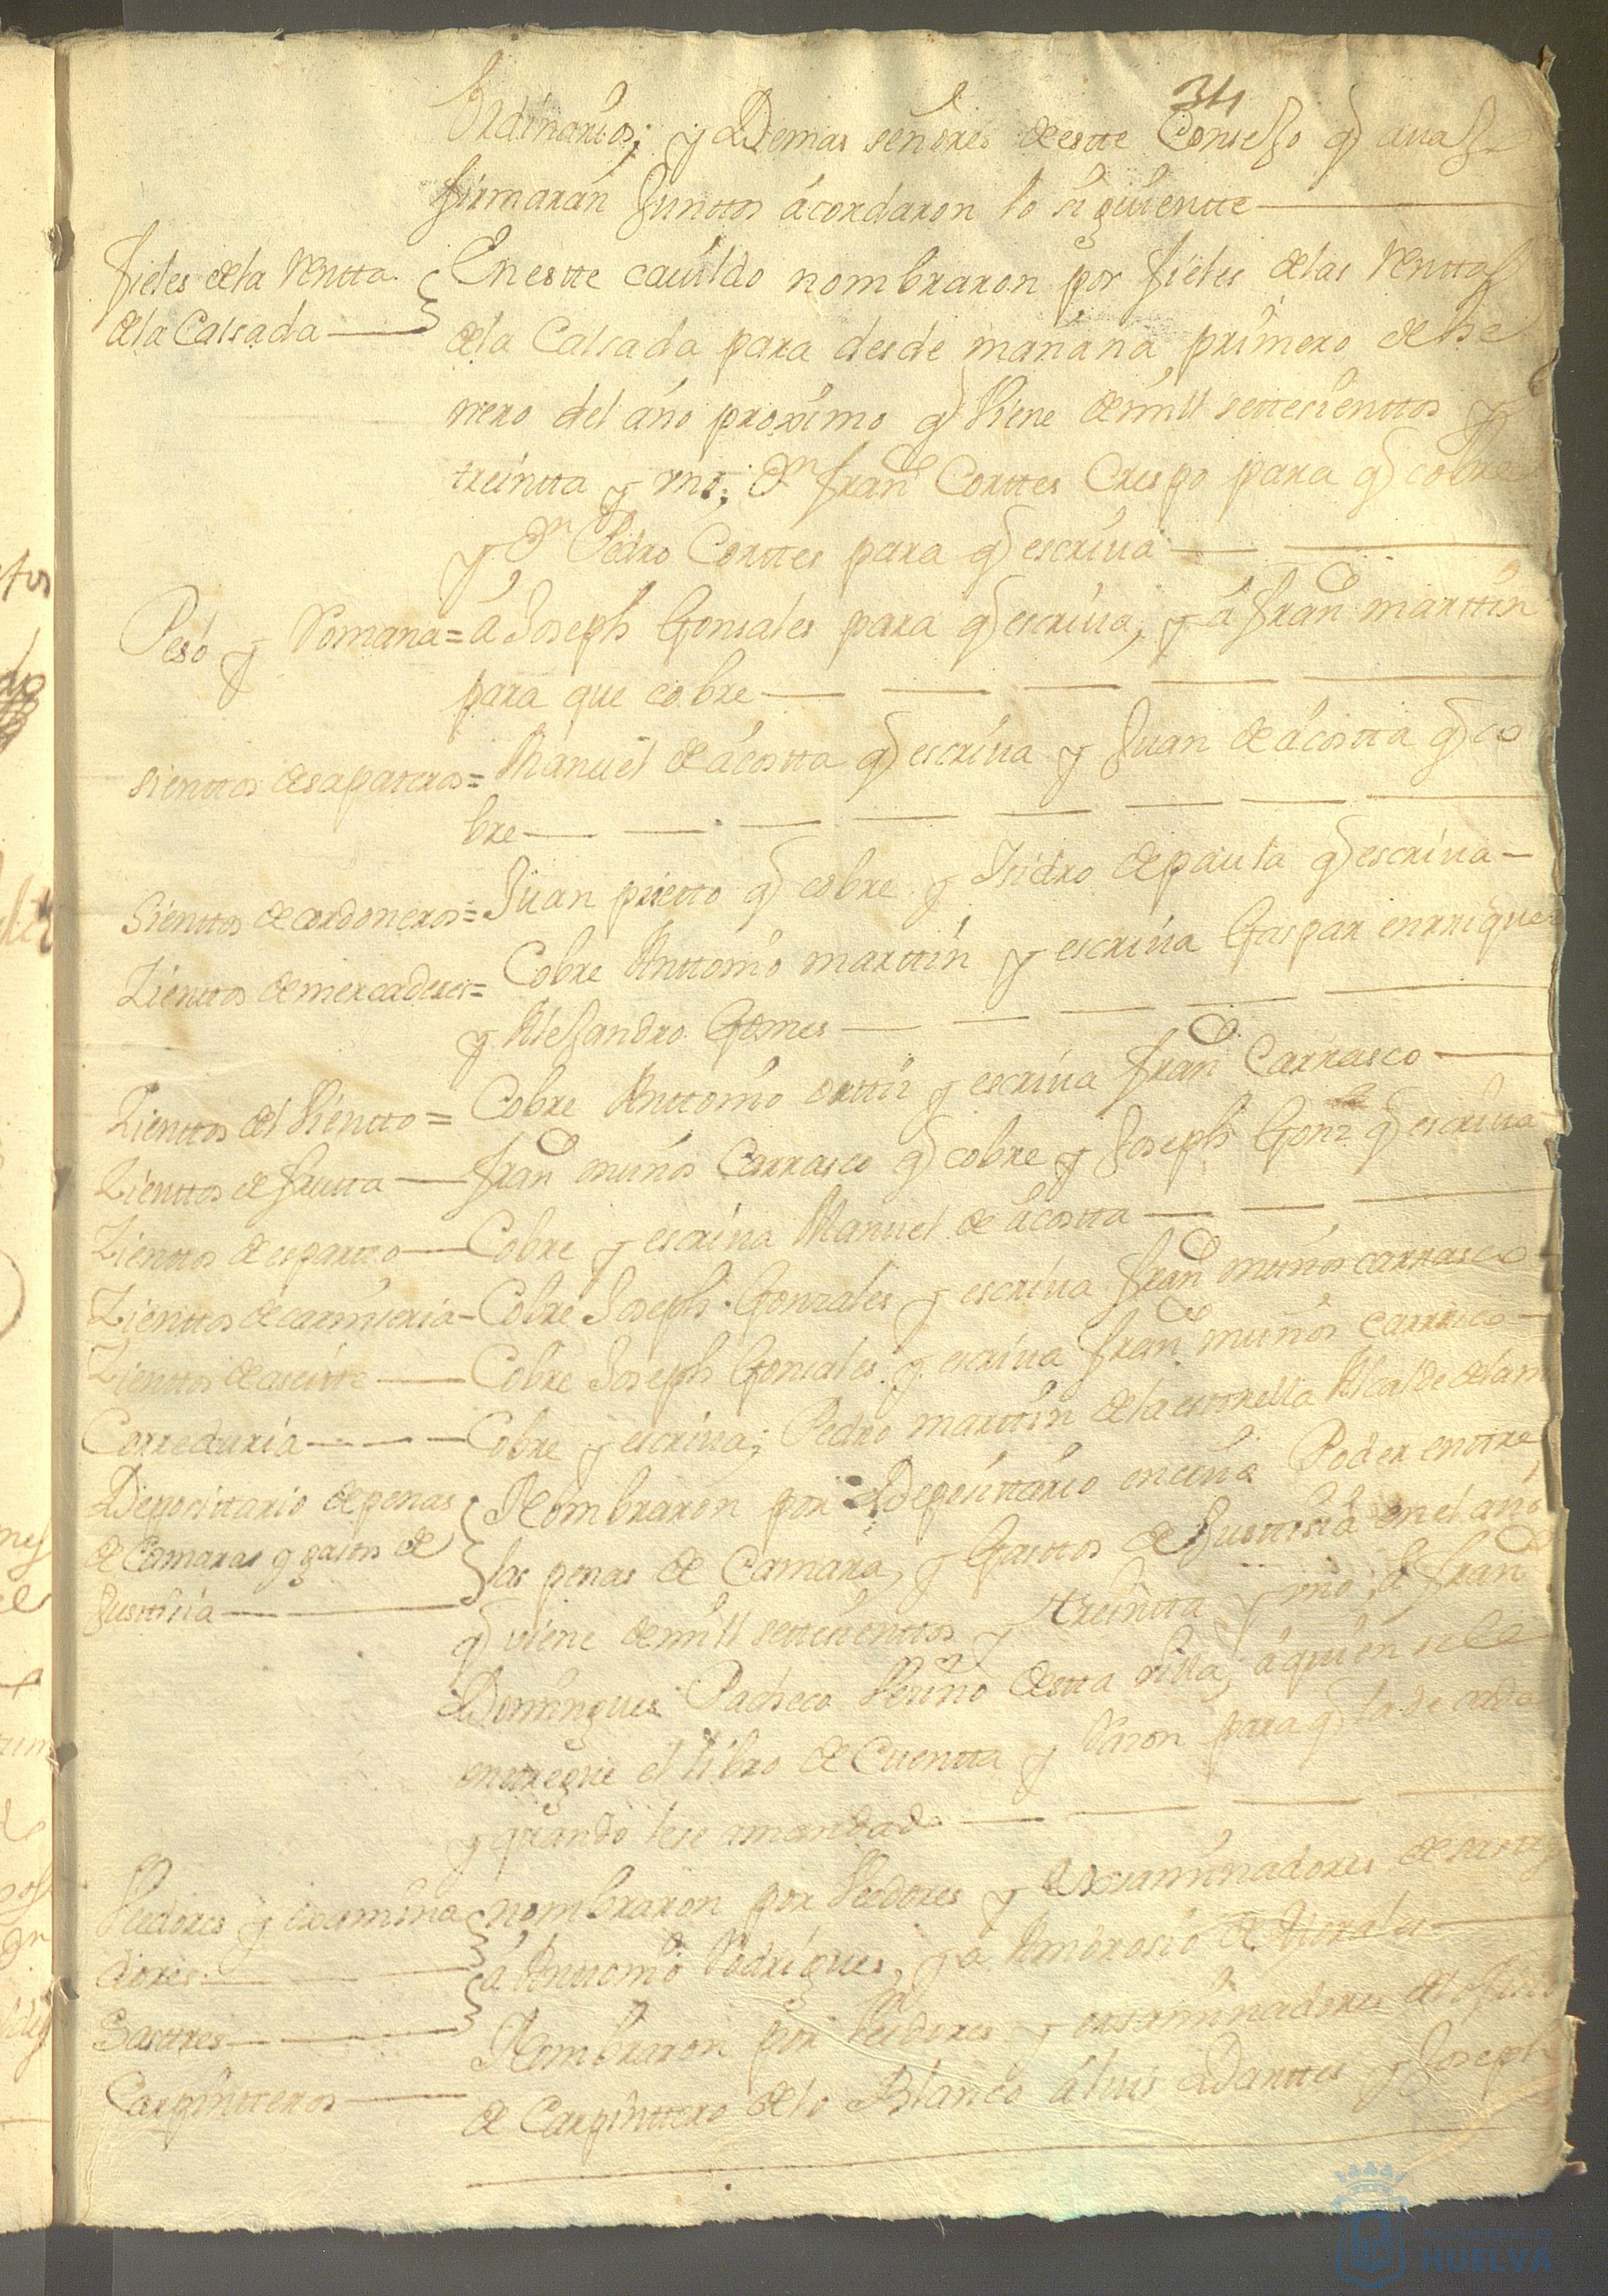 34
Ordinarios; y Demas señores de estte Consejo q avajo
firmaran Junttos acordaron lo siguientte
fieles de la Rentta
de la Calsada
En estte cavildo nombraron por fieles de las Renttas
de la Calsada para desde mañana primero de he
nero del año proximo q Viene de mill settecienttos y
treintta y uno; Dn fran.co Corttes Crespo para q cobre
y Dn Pedro Corttes para q escriva
Peso y Romana = a Joseph Gonsales para q escriva, y a fran.co marttin
para que cobre
sienttos de sapateros = Manuel de acostta q escriva y Juan de acostta q co
bre
Sienttos de cordoneros = Juan prietto q cobre y Isidro de paula q escriva
Zienttos de mercaderes = Cobre Anttonio marttin y escriva Gaspar enrrique
y Alejandro Gomes
Zienttos del Vientto = Cobre Anttonio orttiz y escriva fran.co Carrasco
Zienttos de frutta fran.co muños Carrasco q cobre y Joseph Gonz q escriva
Zienttos de espartto Cobre y escriva Manuel de acostta
Zienttos de carniseria Cobre Joseph Gonzales y escriva fran.co muños carrasco
Zienttos de aseitte Cobre Joseph Gonsales y escriva fran.co muños carrasco
Correduria Cobre y escriva; Pedro marttin de la esttrella Alcalde de la m
Deposittario de penas
de Camaras y gastos de
Justtisia
Nombraron por Deposittario en cuio Poder enttre
las penas de Camara, y Gasttos de Justtisia en el año
q viene de mill settecienttos y ttreintta y uno; a fran.co
Domingues Pacheco Vecino destta villa, a quien se le
enttregue el libro de Cuentta y Rason para q la de cada
y quando le se a mandado
Veedores y examina
dores
Sasttres
nombraron por Veedores y Exsaminadores de sasttre
a Anttonio Rodrigues, y a Ambrosio de Morales
Carpintteros
Nombraron por Veedores y exsaminadores del ofisio
de Carpinttero de lo Blanco a luis Darttes y Joseph
HUELVA